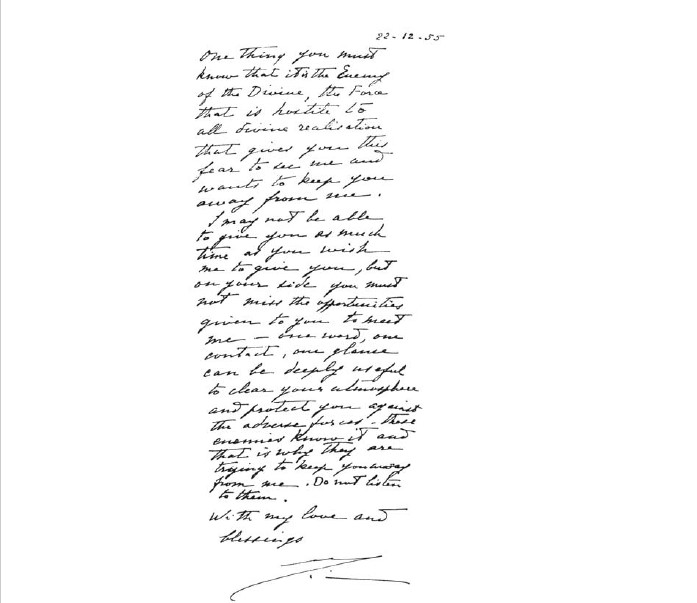 22-12-55
One thing you must
know that it is the Enemy
of the Divine, the Force
that is hostile to
all divine realisation
that gives you this
fear to see me and
wants to keep you
away from me.
I may not be able
to give you as much
time as you wish
me to give you, but
on your side you must
not miss the opportunities
given to you to meet
me — one word, one
contact, one glance
can be deeply useful
to clear your atmosphere
and protect you against
the adverse forces - these
enemies know it and
that is why they are
trying to keep you away
from me. Do not listen
to them.
With my love and
blessings